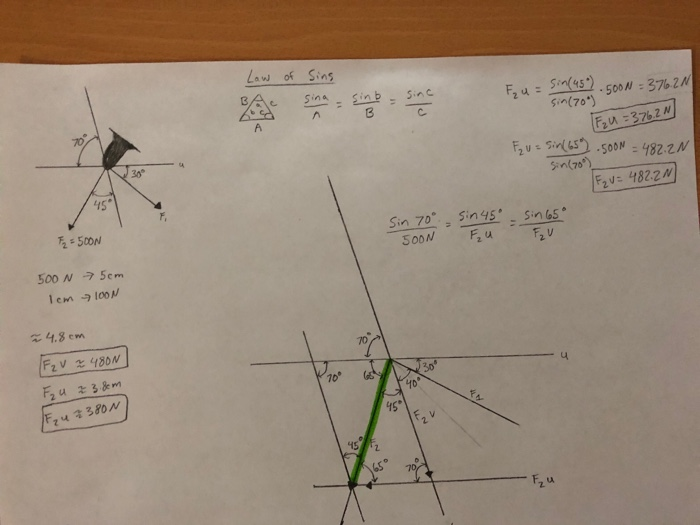 Law of Sins
B
a
c
b
c
A
sin a / A = sin b / B = sin c / C
F₂u = sin(45°) / sin(70°) · 500N = 376.2N
F₂u = 376.2N
F₂v = sin(65°) / sin(70°) · 500N = 482.2N
F₂v = 482.2N
70°
u
30°
45°
F₁
F₂ = 500N
sin 70° / 500N = sin 45° / F₂u = sin 65° / F₂v
500 N → 5cm
1cm → 100N
≈ 4.8cm
F₂v ≈ 480N
F₂u ≈ 3.8cm
F₂u ≈ 380N
70°
u
70°
30°
40°
45°
F₁
F₂v
45°
F₂
65°
70°
F₂u